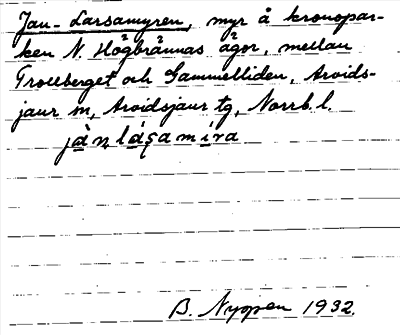 Jan-Larsamyren, myr å kronopar-
ken N. Högbrännas ägor, mellan
Trollberget och Gammelliden, Arvids-
jaur sn, Arvidsjaur tg, Norrb. l.
B. Nyppen 1932.